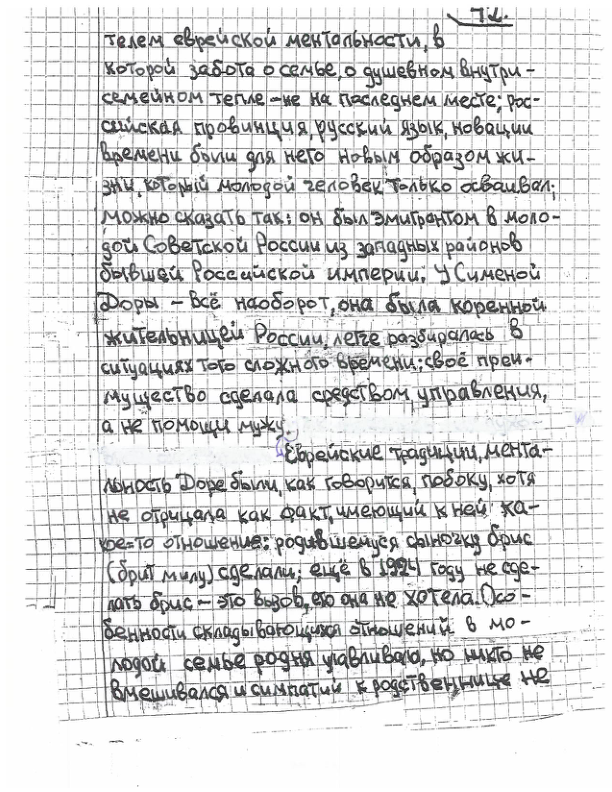 71.
телем еврейской ментальности, в
которой забота о семье, о душевном внутри-
семейном тепле – не на последнем месте; рос-
сийская провинция, русский язык, новации
времени были для него новым образом жи-
зни, который молодой человек только осваивал;
можно сказать так: он был эмигрантом в моло-
дой Советской России из западных районов
бывшей Российской империи. У Сименой
Доры – всё наоборот, она была коренной
жительницей России, легче разбиралась в
ситуациях того сложного времени; своё преи-
мущество сделала средством управления,
а не помощи мужу.
Еврейские традиции, мента-
льность Доре были, как говорится, побоку, хотя
не отрицала как факт, имеющий к ней ка-
кое=то отношение: родившемуся сыночку брис
(брит милу) сделали; ещё в 1924 году не сде-
лать брис – это вызов, его она не хотела. Осо-
бенности складывающихся отношений в мо-
лодой семье родня улавливаю, но никто не
вмешивался и симпатии к родственнице не